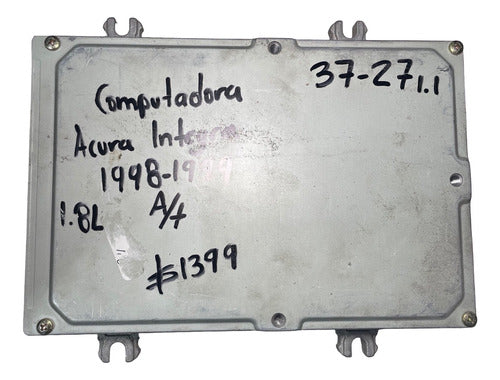 Computadora
37-271.1
Acura Integra
1998-1999
1.8L A/t
$1399